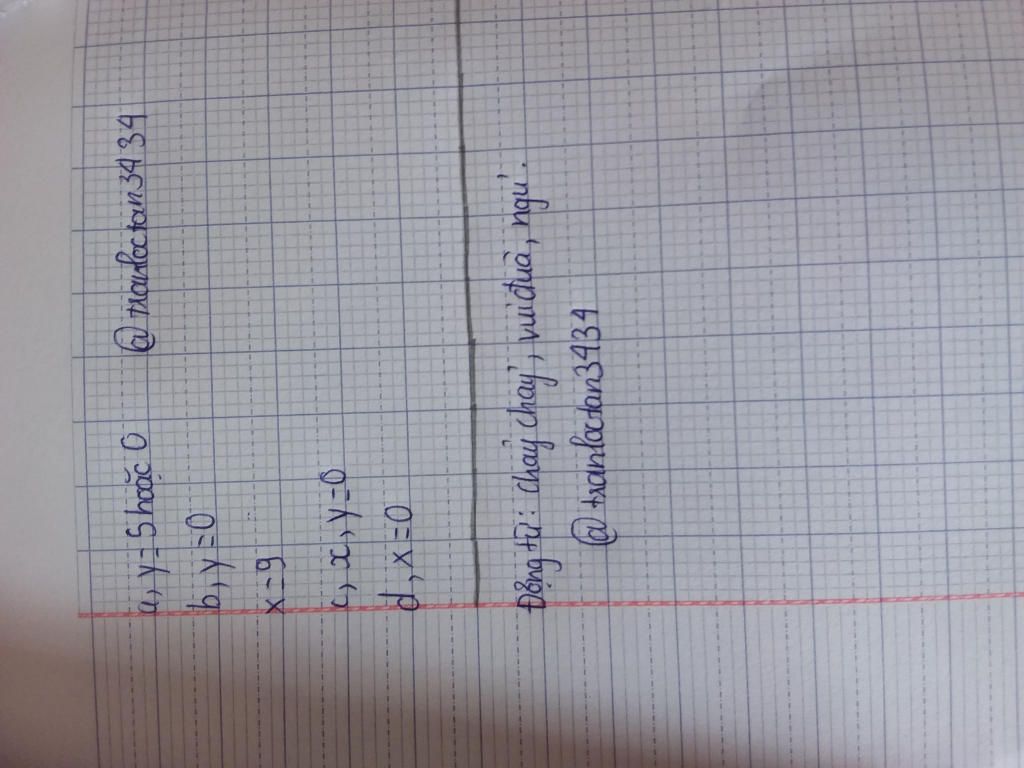 a, y=5 hoặc 0 @tranloctan3434
b, y=0
x=9
c, x, y=0
d, x=0
Động từ: chảy, chạy, vui đùa, ngủ.
@tranloctan3434